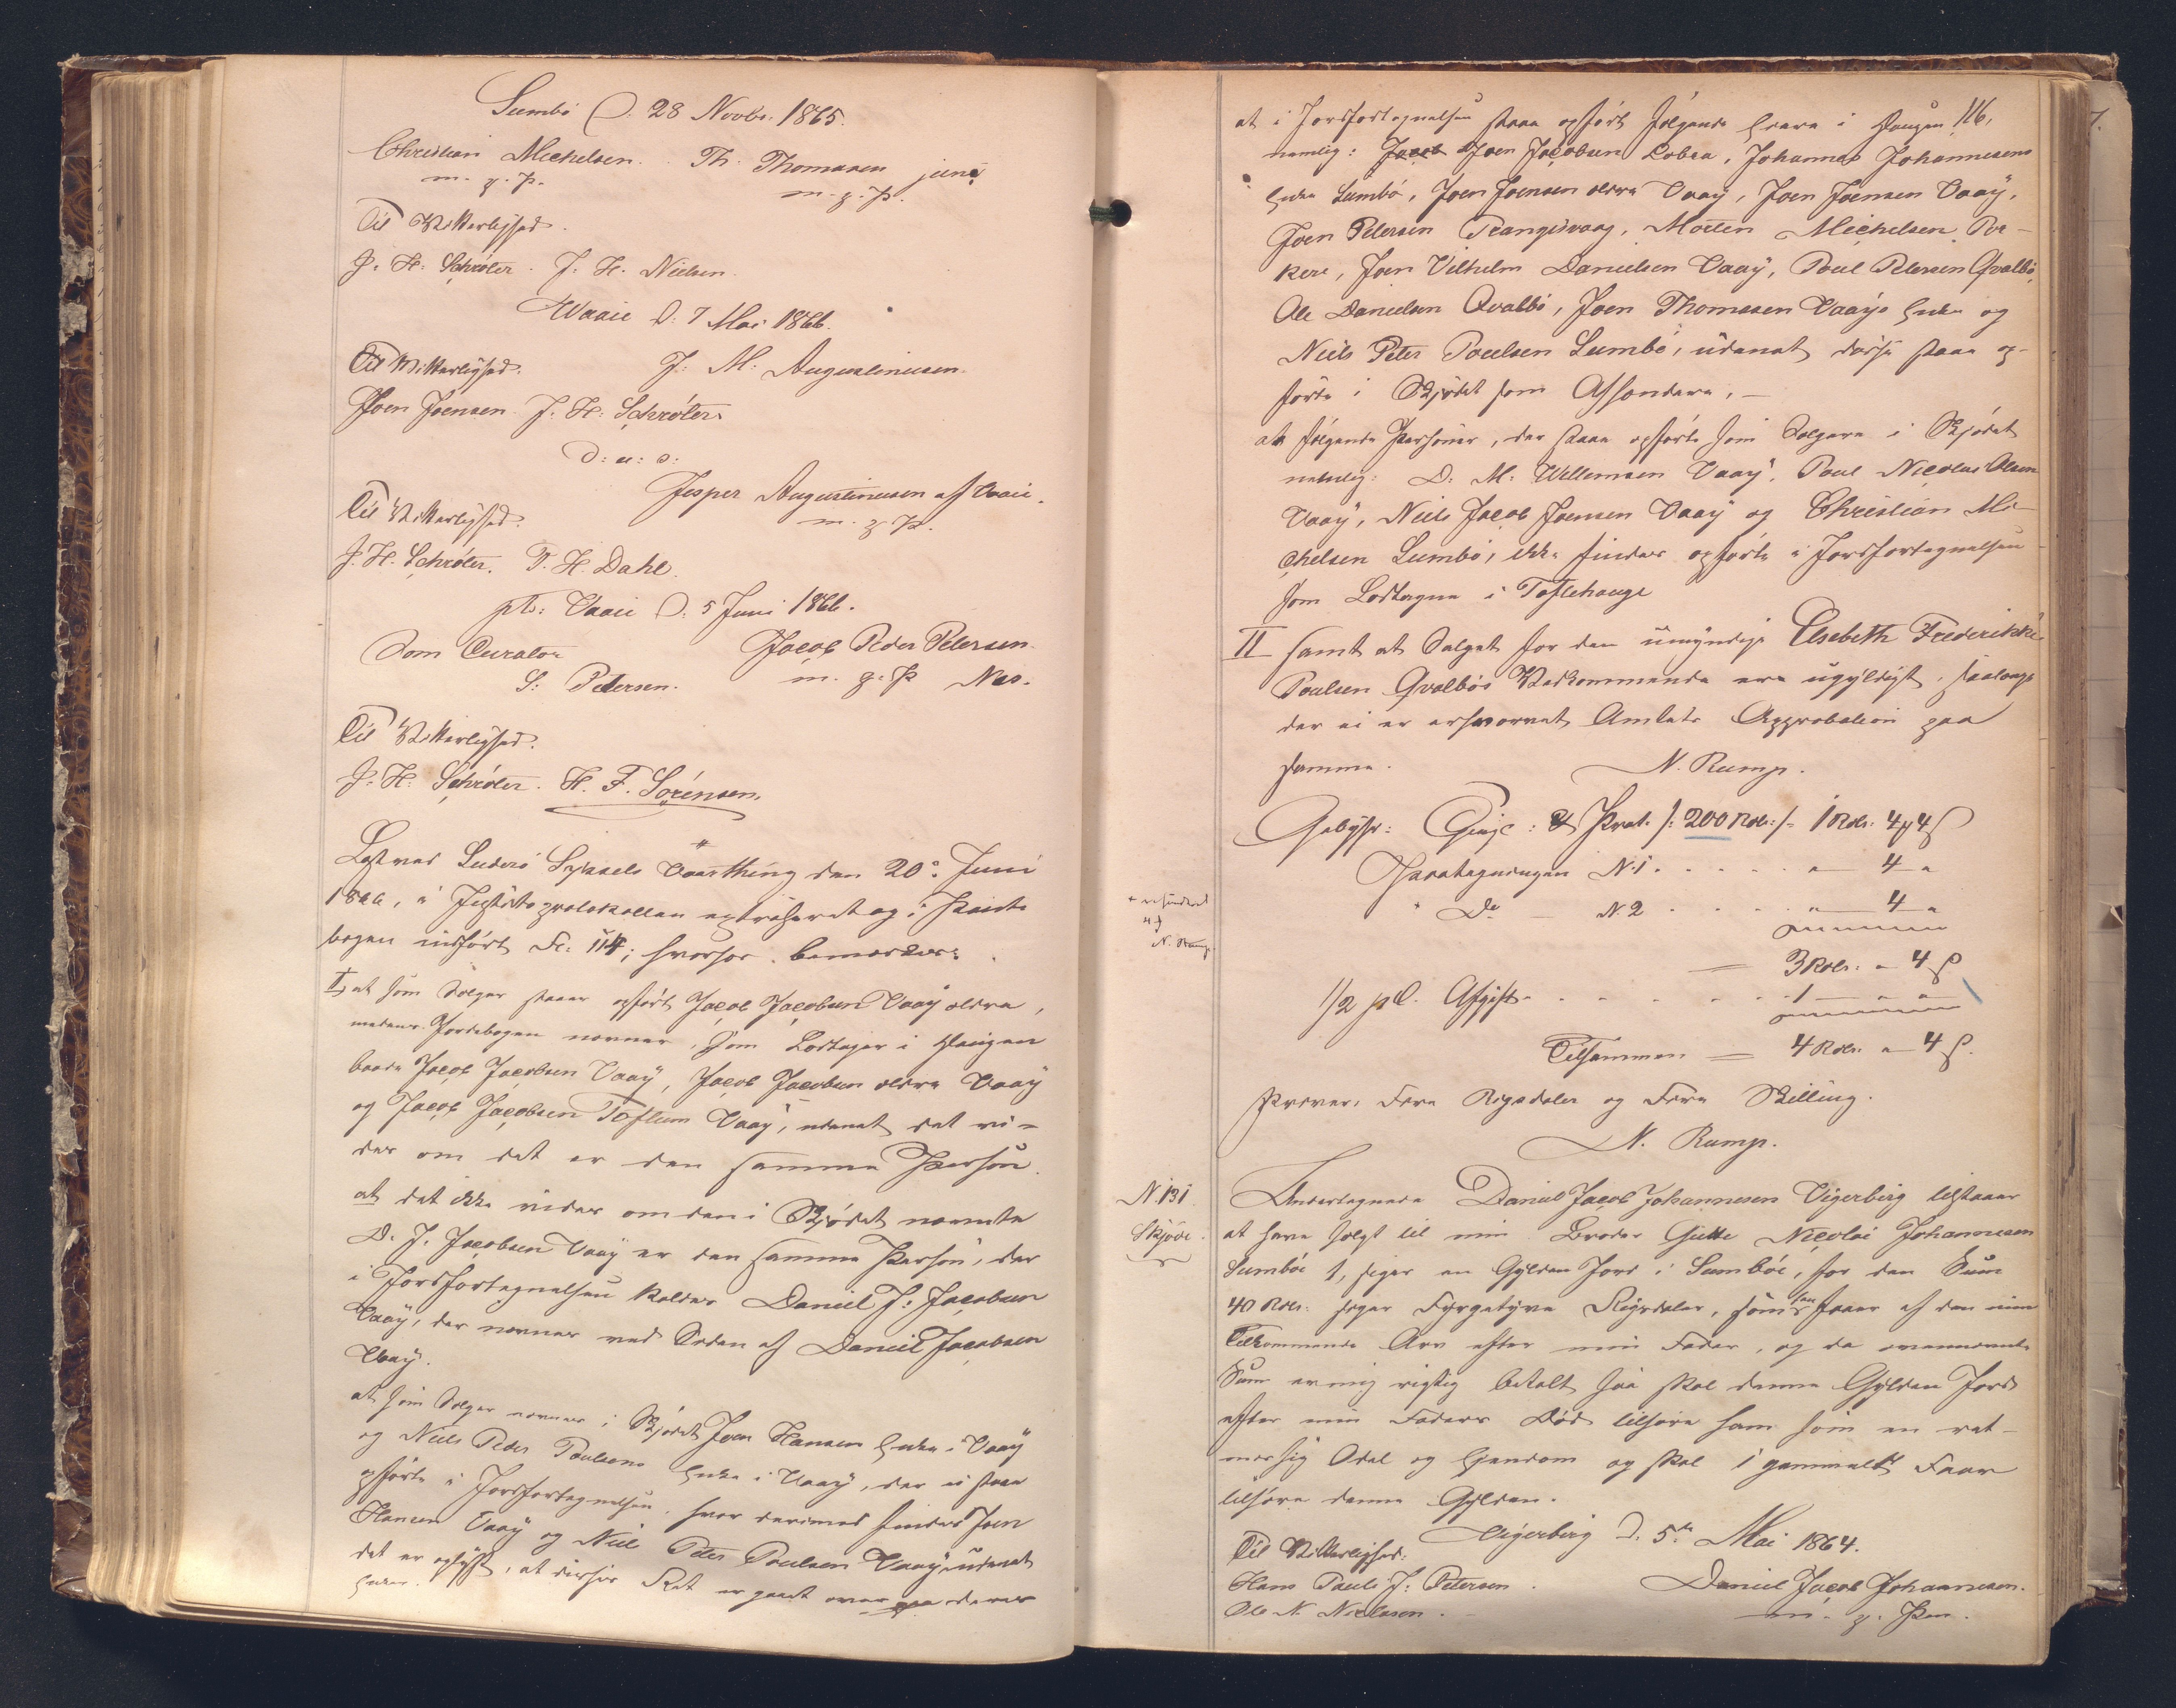 Sumbö D. 28 Novbr. 1865.
Christian Michelsen. Th. Thomasen junr
m. p. P. m. p. P.
Til Vitterlighed.
J. H. Schröter. J. H. Nielsen.
Waaie D: 7 Mai 1866.
Til Vitterlighed. J. M. Augustinusen.
Joen Joensen. J. H: Schröter.
D: u: s:
Jesper Augustinusen af Vaaie.
Til Vitterlighed. m. p. P.
J. H. Schröter. T. H. Dahl.
pt: Vaaie D. 5 Juni 1866.
Som Curator Jacob Peder Petersen
S: Petersen. m. p. P. Nes.
Til Vitterlighed.
J. H. Schröter. H. F. Sörensen.
Læst ved Suderö Syssels Vaarthing den 20de Juni
1866, i Justitsprotokollen extraheret og i Pante
bogen indfört Fo: 114; hvorhos bemærkes:
I, at som Sælger staaer opfört Jacob Jacobsen Vaaÿ ældre,
medens Jordebogen nævner som Lodtager i Haugen
baade Jacob Jacobsen Vaaÿ, Jacob Jacobsen ældre Vaaÿ
og Jacob Jacobsen Toftum Vaaÿ, udenat det vi-
des om det er den samme Person.
at det ikke vides om den i Skjödet nævnte
D. J. Jacobsen Vaaÿ er den samme Person, der
i Jordfortegnelsen kaldes Daniel J: Jacobsen
Vaaÿ, der nævnes ved Siden af Daniel Jacobsen
Vaaÿ.
at som Sælger nævnes i Skjödet Joen Hansen Enke i Vaaÿ
og Niels Peder Poulsens Enke i Vaaÿ, der ei staae
opförte i Jordfortegnelsen, hvor derimod findes Joen
Hansen Vaaÿ og Niels Peter Poulsen Vaaÿ, udenat
det er oplyst, at disses Ret er gaaet over paa deres
Enker.
116.
at i Jordfortegnelsen staae opfört fölgende Eiere i Haugen
nemlig: Jacob Joen Jacobsen Lobra, Johannes Johannesens
Enke Sumbö, Joen Joensen ældre Vaaÿ, Joen Joensen Vaaÿ,
Joen Petersen Trangisvaag, Morten Michelsen Por-
kere, Joen Vilhelm Danielsen Vaaÿ, Poul Petersen Qvalbö,
Ole Danielsen Qvalbö, Joen Thomasen Vaaÿs Enke og
Niels Peter Poulsen Sumbö, udenat disse staae op-
förte i Skjödet som Afhændere,
at fölgende Personer, der staae opförte som Sælgere i Skjödet
nemlig: D. M. Willemsen Vaaÿ, Poul Nicolai Olsen
Vaaÿ, Niels Jacob Joensen Vaaÿ og Christian Mi-
chelsen Sumbö, ikke findes opförte i Jordfortegnelsen
som Lodtagere i Toftehauge
II samt at Salget for den umyndige Elsebeth Frederikke
Poulsen Qvalbös Vedkommende ere ugyldigt, saalænge
der ei er erhvervet Amtets Approbation paa
samme. N. Rump.
Gebyhr: Thingl: & Prot. /: 200 Rdlr :/ 1 Rdlr. 4 4 ß
Paategningen N. 1 4
Do N. 2 4
3 Rdlr. 4 ß
1/2 pC. Afgift 1
Tilsammen 4 Rdlr. 4 ß.
skriver Fire Rigsdaler og Fire Skilling.
N. Rump.
refunderet
4 ß
N. Rump
N. 131
Skjöde.
Undertegnede Daniel Jacob Johannesen Vigerbirg tilstaaer
at have solgt til min Broder Gutte Nicolai Johannesen
Sumböe 1, siger en Gylden Jord i Sumböe, for den Sum
40 Rdlr: siger Fyrgetyve Rigsdaler, som han faaer af den min
Tilkommende Arv efter min Fader, og da ovennævnte
Sum er mig rigtig betalt saa skal denne Gylden Jord
efter min Faders Död tilhöre ham som en ret-
mæssig Odel og Ejendom og skal 1 gammelt Faar
tilhöre denne Gylden.
Vigerbirg D. 5te Mai 1864.
Til Vitterlighed:
Hans Pauli J. Petersen. Daniel Jacob Johannesen.
Ole N. Nielsen. m. p. Pen.